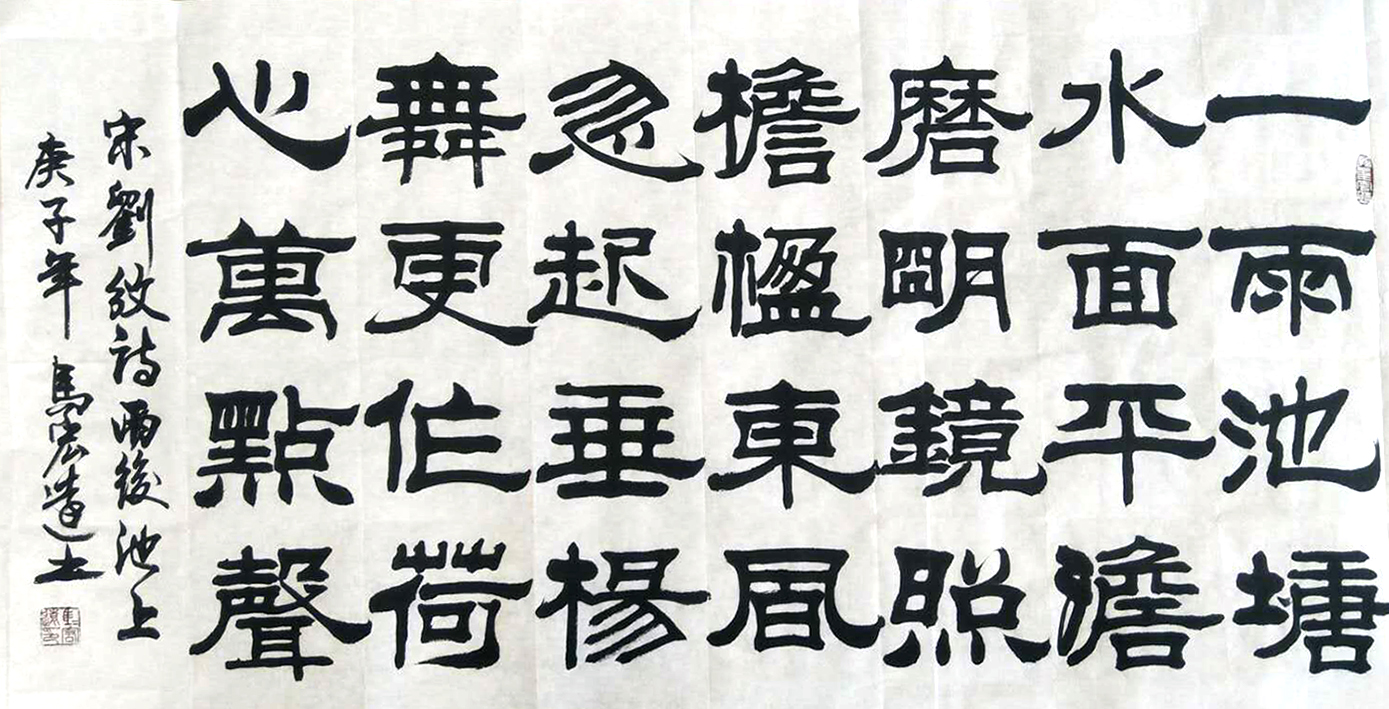 一雨池塘
水面平澹
磨明鏡照
檐楹東風
忽起垂楊
舞更作荷
心萬點聲
宋劉攽詩雨後池上
庚子年 馬宏